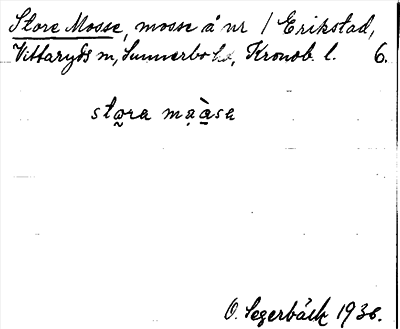 Store Mosse, mosse å nr 1 Erikstad,
Vittaryds sn, Sunnerbo hd, Kronob. l. 6.
stora maàse
O. Segerbäck 1936.